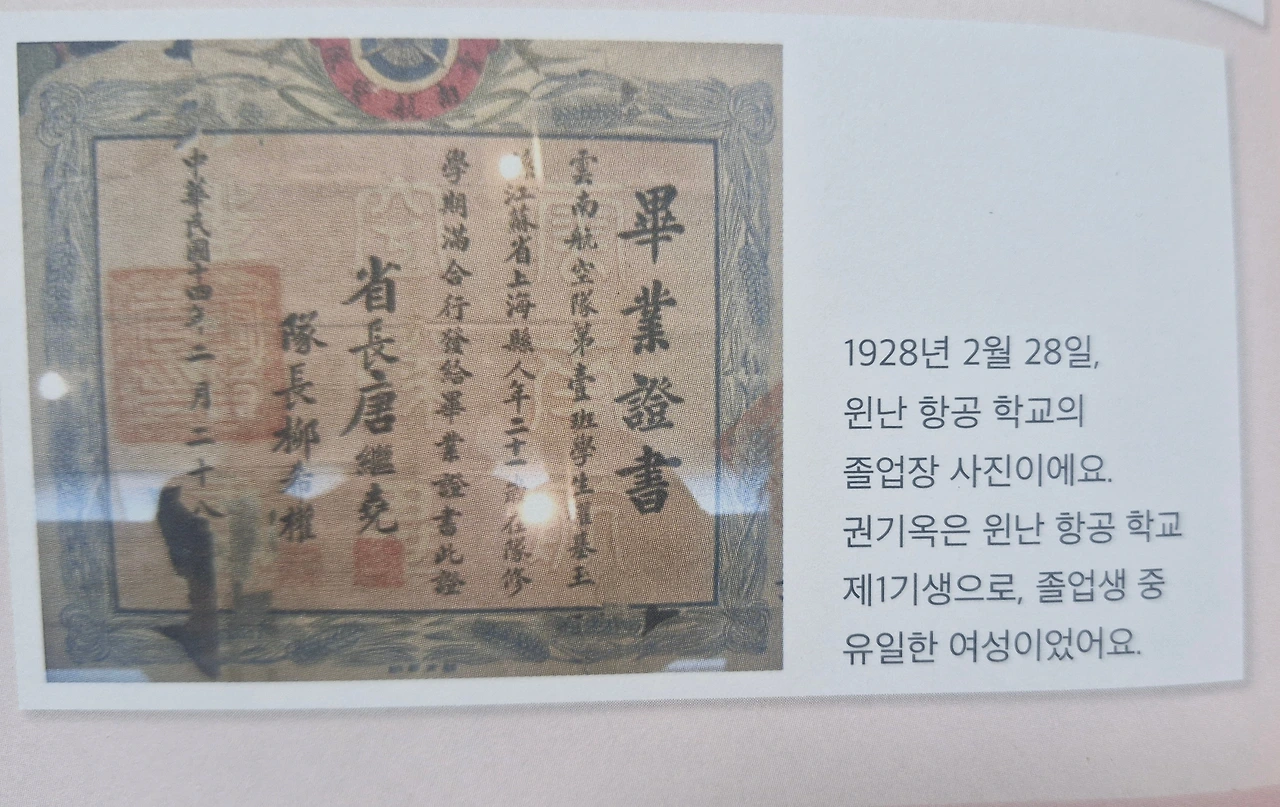 畢業證書
雲南航空隊第壹班學生權基玉
江蘇省上海縣人年二十一 在隊修
學期滿合行發給畢業證書此證
省長唐繼堯
隊長柳希權
中華民國十四年二月二十八
1928년 2월 28일,
윈난 항공 학교의
졸업장 사진이에요.
권기옥은 윈난 항공 학교
제1기생으로, 졸업생 중
유일한 여성이었어요.